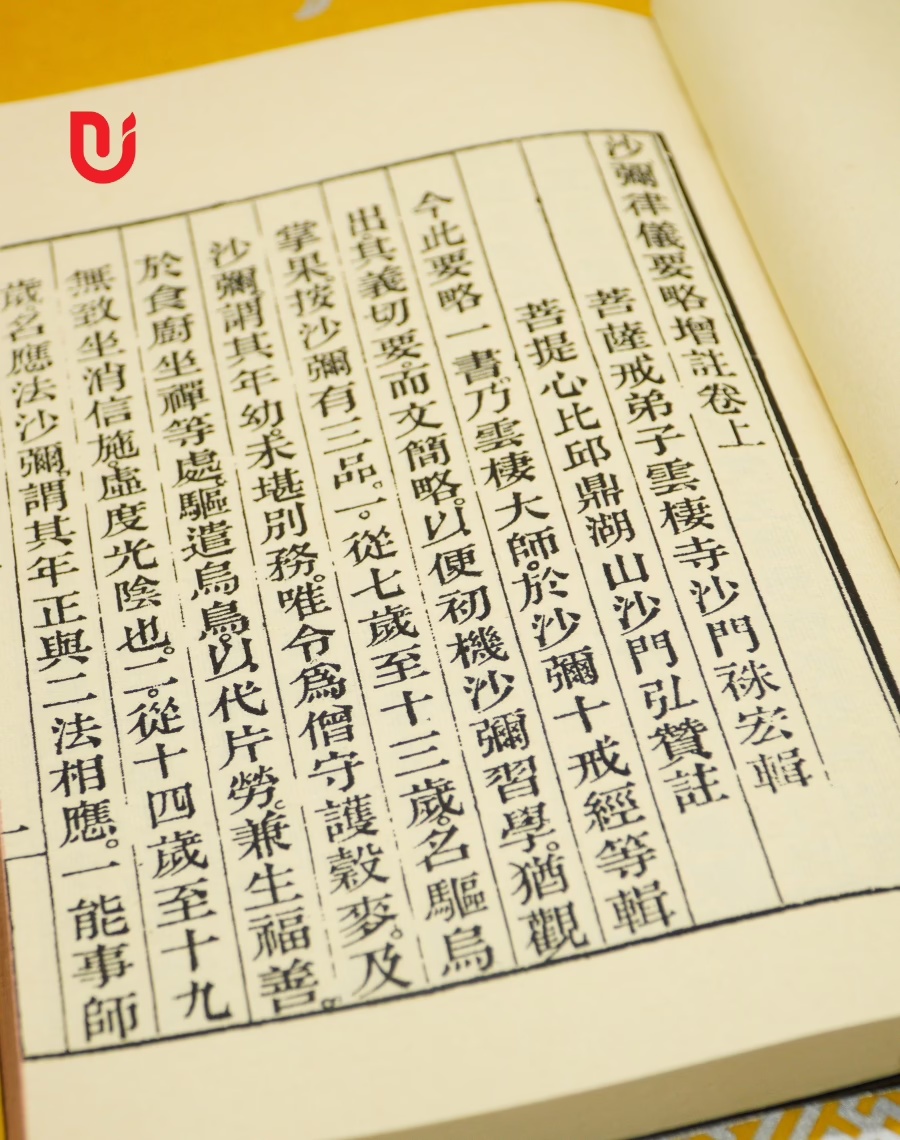 沙彌律儀要略增註卷上
菩薩戒弟子雲棲寺沙門祩宏輯
菩提心比邱鼎湖山沙門弘贊註
今此要略一書。乃雲棲大師。於沙彌十戒經等輯
出。其義切要。而文簡略。以便初機沙彌習學。猶觀
掌果。按沙彌有三品。一。從七歲至十三歲。名驅烏
沙彌。謂其年幼。未堪別務。唯令為僧守護穀麥。及
於食廚坐禪等處。驅遣烏鳥。以代片勞。兼生福善。
無致坐消信施。虛度光陰也。二。從十四歲至十九
歲。名應法沙彌。謂其年正與二法相應。一能事師
一